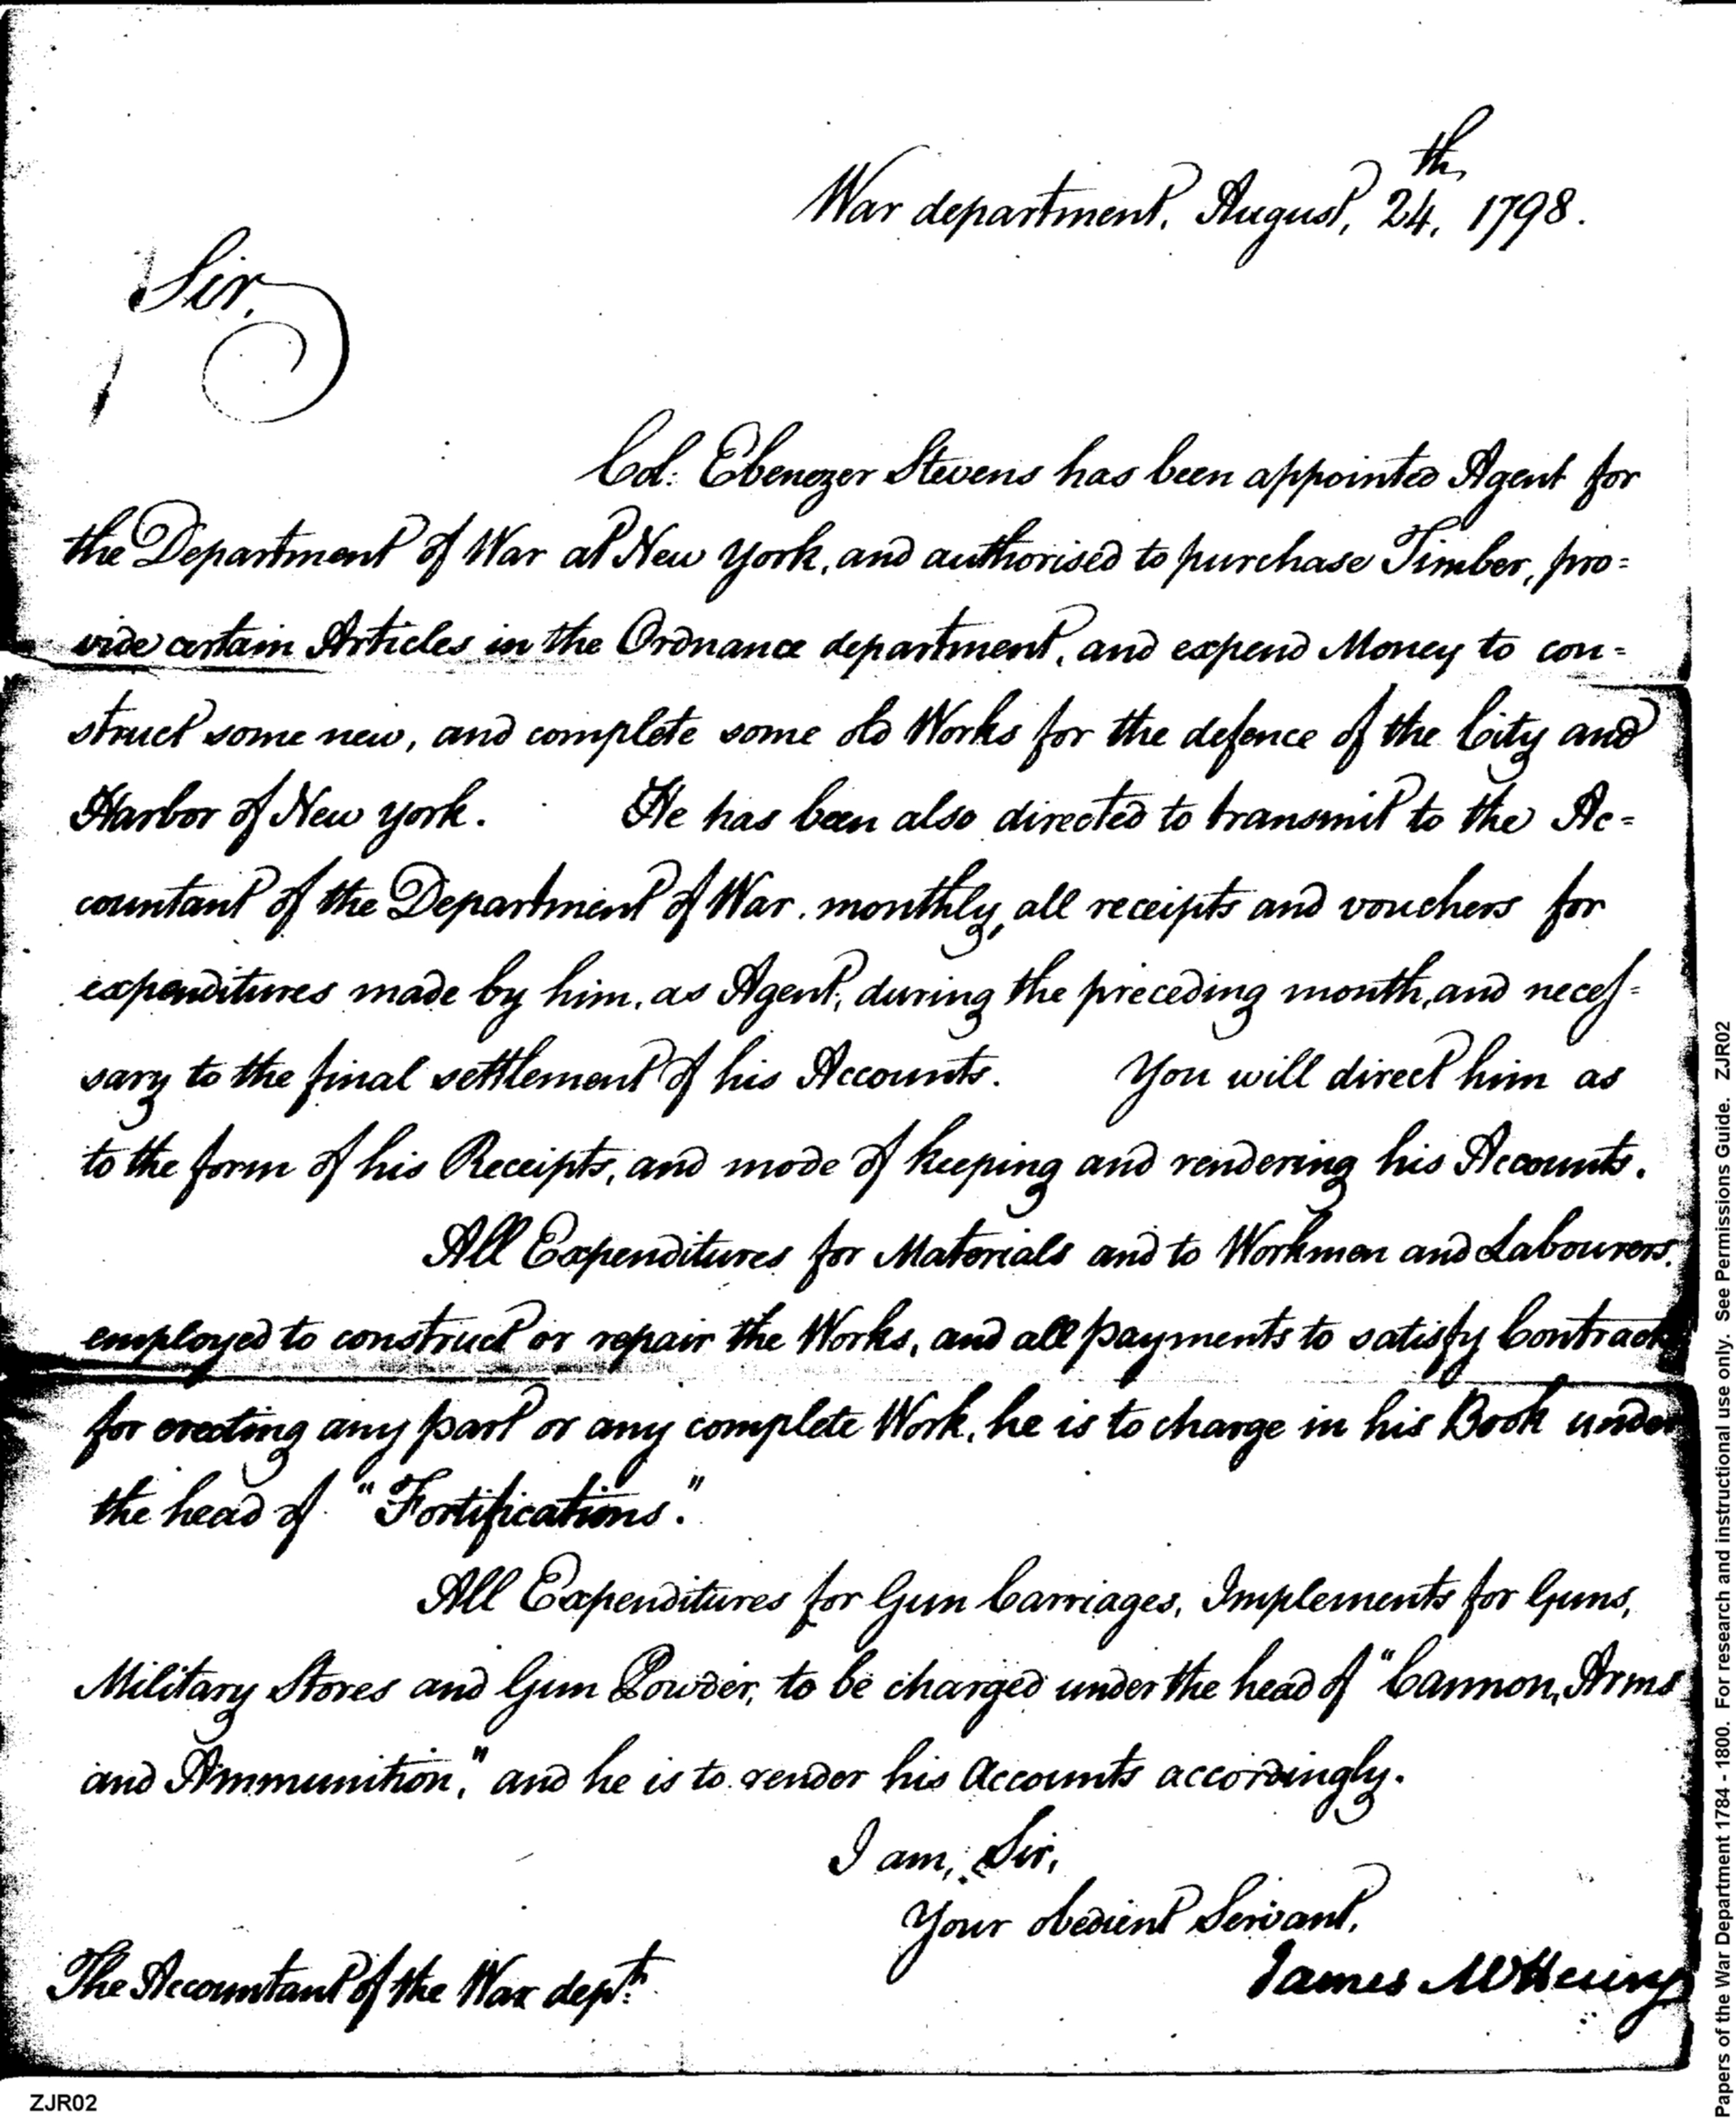 War department, August, 24th, 1798.
Sir,
Col: Ebenezer Stevens has been appointed Agent for
the Department of War at New York, and authorised to purchase Timber, pro=
vide certain Articles in the Ordnance department, and expend Money to con=
struct some new, and complete some old Works for the defence of the City and
Harbor of New York. He has been also directed to transmit to the Ac=
countant of the Department of War. monthly, all receipts and vouchers for
expenditures made by him, as Agent, during the preceding month, and neceſ=
sary to the final settlement of his Accounts. You will direct him as
to the form of his Receipts, and mode of keeping and rendering his Accounts.
All Expenditures for Materials and to Workmen and Labourers.
employed to construct or repair the Works, and all payments to satisfy Contracts
for erecting any part or any complete Work, he is to charge in his Book under
the head of "Fortifications."
All Expenditures for Gun Carriages, Implements for Guns,
Military Stores and Gun Powder, to be charged under the head of "Cannon, Arms
and Ammunition," and he is to render his Accounts accordingly.
I am, Sir,
Your obedient Servant,
James McHenry
The Accountant of the War dept.
ZJR02
Papers of the War Department 1784 - 1800. For research and instructional use only. See Permissions Guide. ZJR02